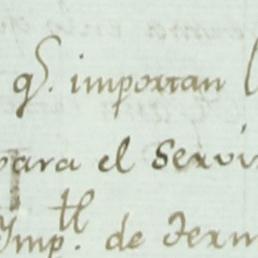 qͤ. importan
para el Servi
Imp.ᵗˡ de Term